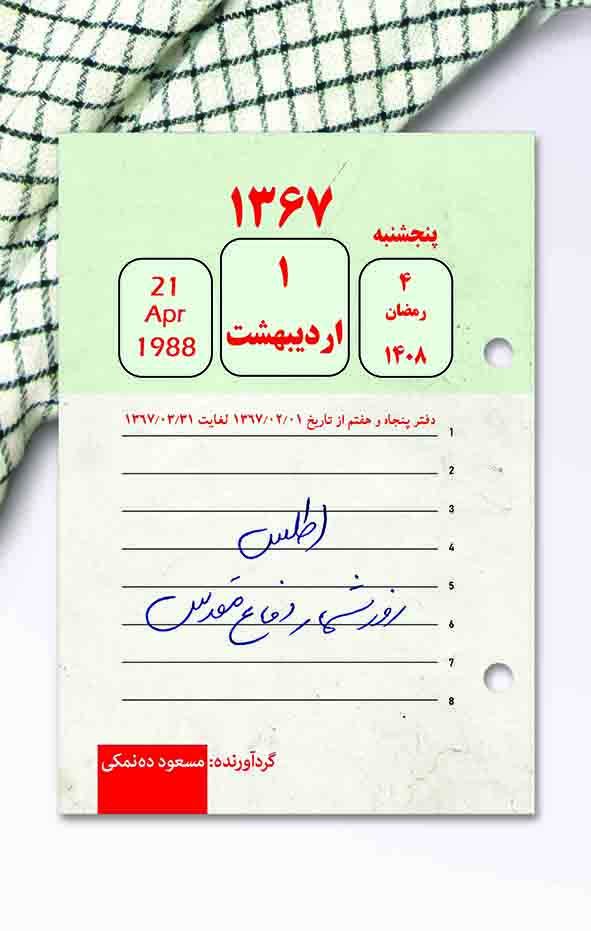 ۱۳۶۷
پنجشنبه
۴
رمضان
۱۴۰۸
۱
اردیبهشت
21
Apr
1988
دفتر پنجاه و هفتم از تاریخ ۱۳۶۷/۰۲/۰۱ لغایت ۱۳۶۷/۰۳/۳۱
1
2
3
اطلس
4
5
روزشمار دفاع مقدس
6
7
8
گردآورنده: مسعود ده‌نمکی